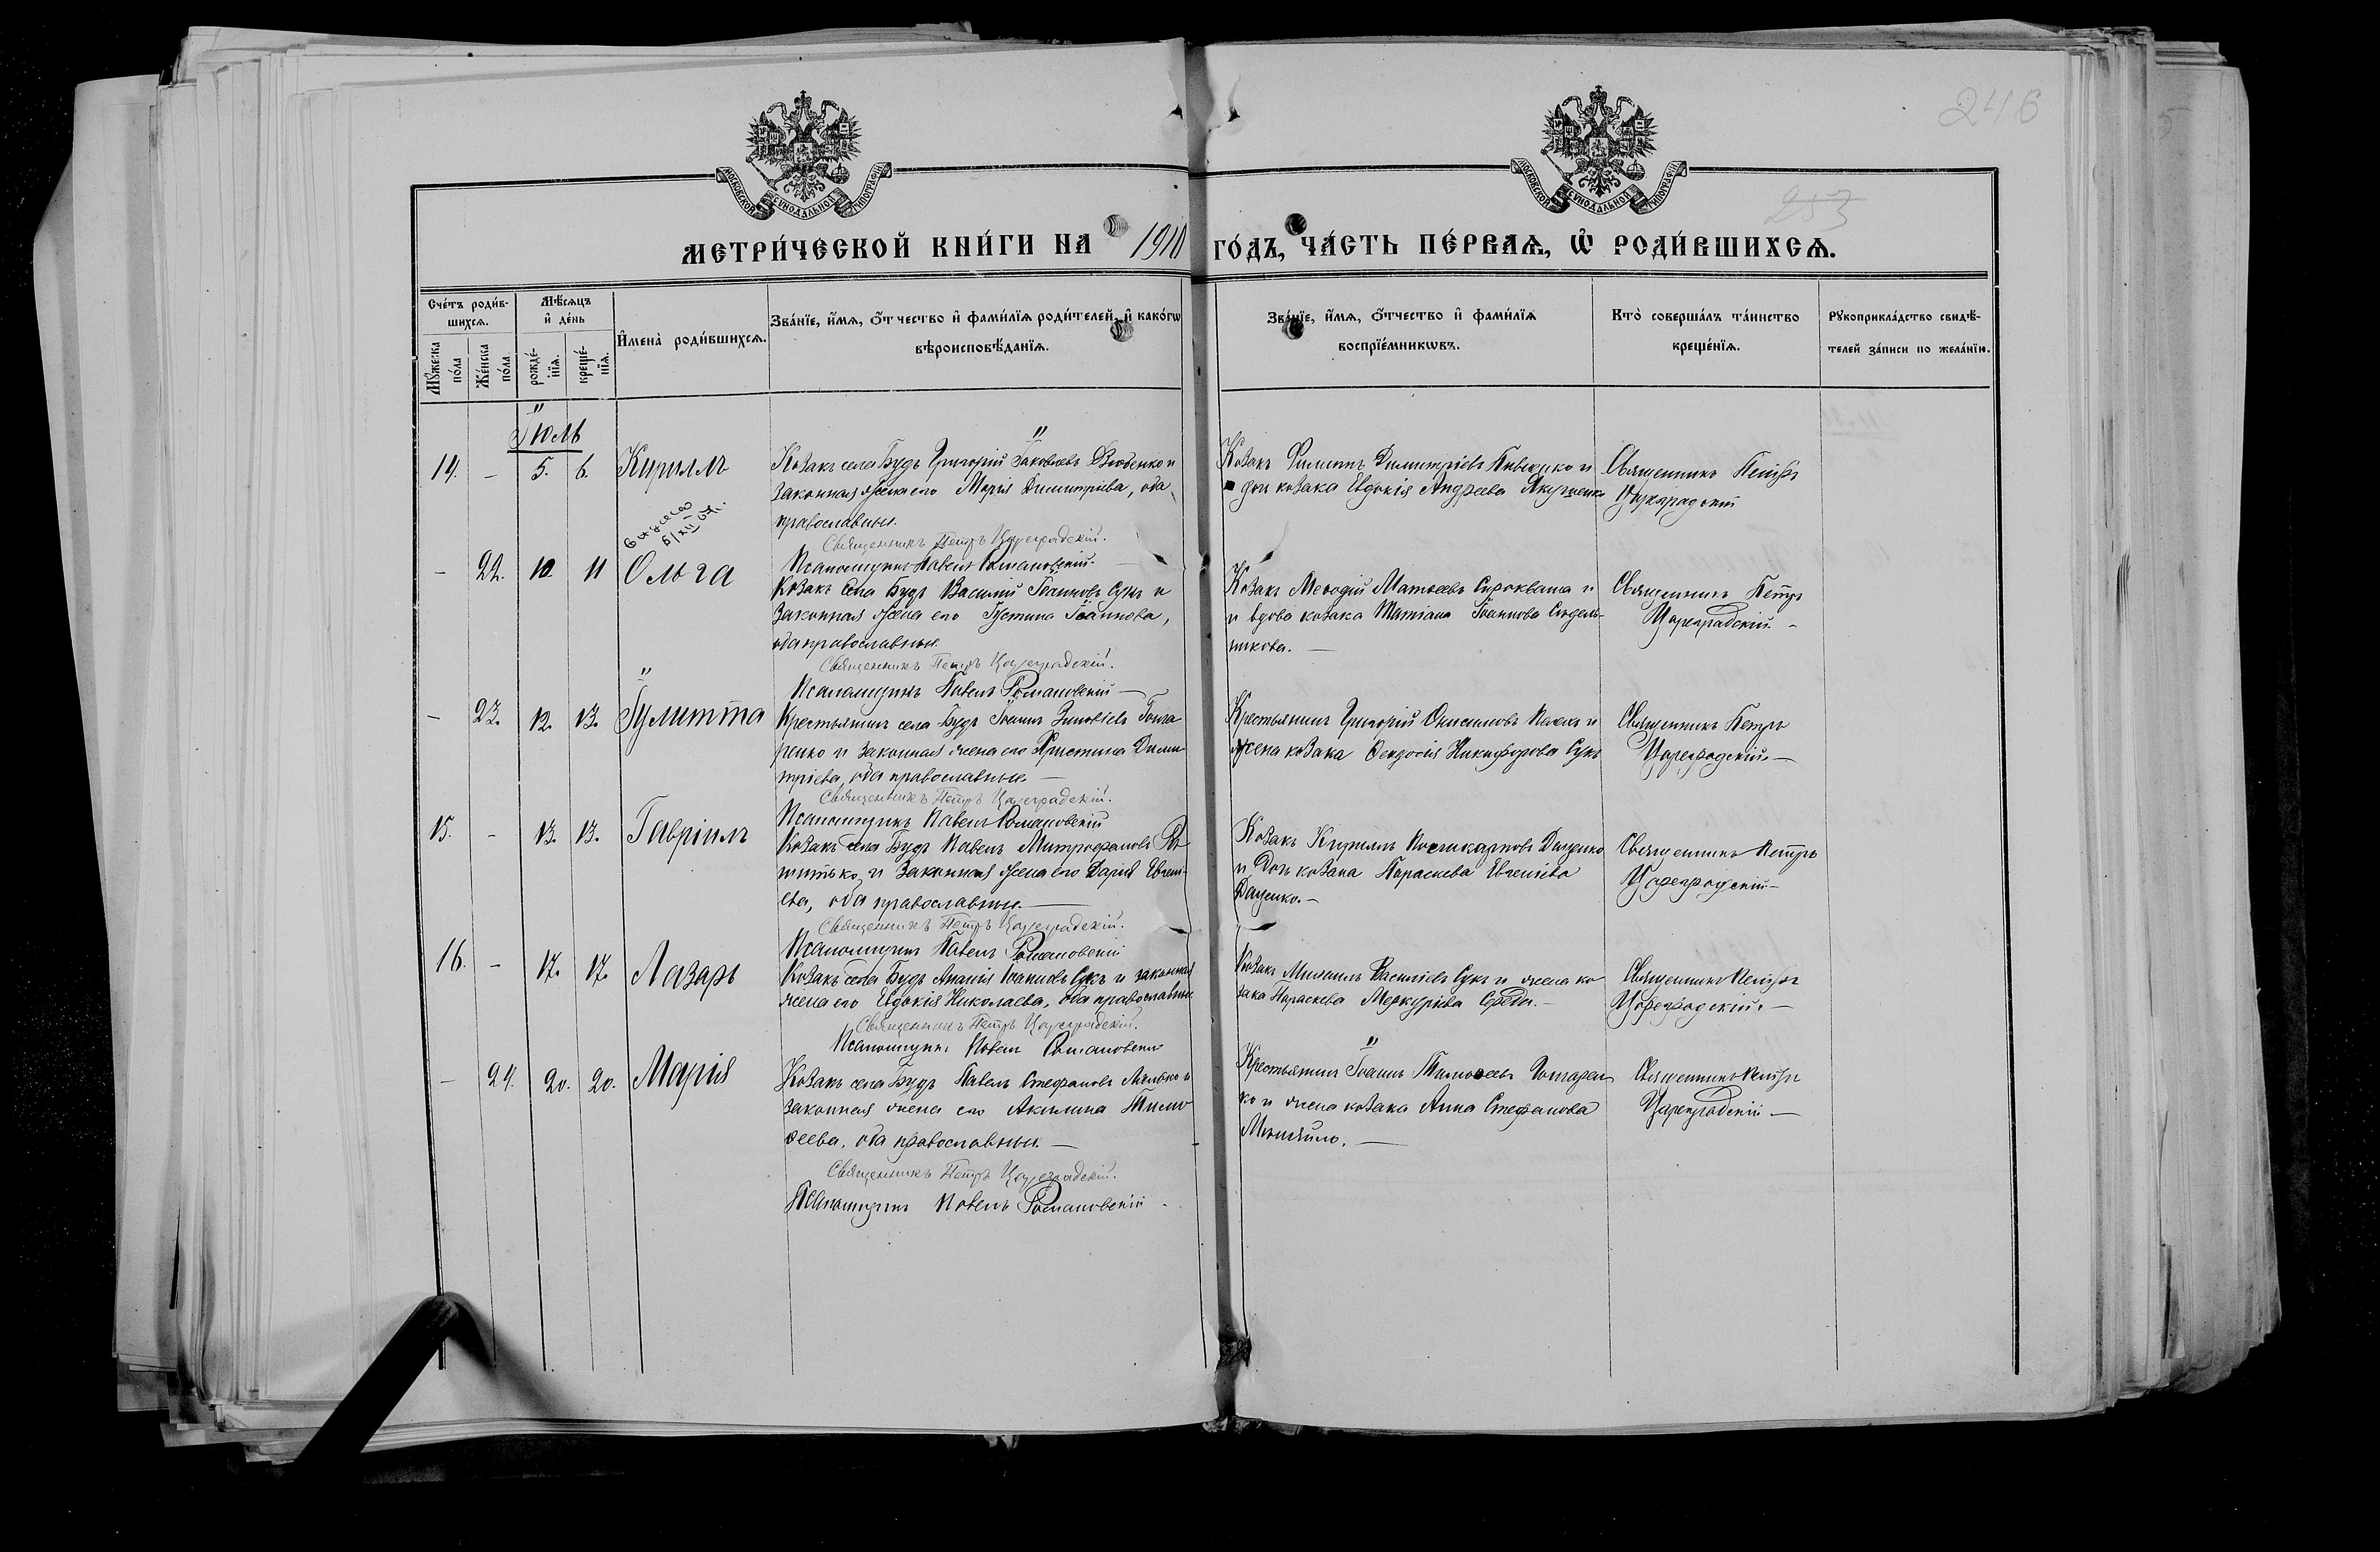 246
253
МОСКОВСКОЙ СѴНОДАЛЬНОЙ ТИПОГРАФІИ
МОСКОВСКОЙ СѴНОДАЛЬНОЙ ТИПОГРАФІИ
МЕТРИ́ЧЕСКОЙ КНИ́ГИ НА 1910 ГО́ДЪ, ЧА́СТЬ ПЕ́РВАѦ, Ѡ҆ РОДИ́ВШИХСѦ.
Сче́тъ роди́в-
шихсѧ.
Мѣ́сѧцъ
и҆ де́нь
Мꙋ́жеска
по́ла
Же́нска
по́ла
рожде́-
нїѧ.
креще́-
нїѧ.
И҆мена̀ роди́вшихсѧ.
Зва́нїе, и҆́мѧ, ѻ҆́тчество и҆ фами́лїѧ роди́телей, и҆ како́гѡ
вѣроисповѣ́данїѧ.
Зва́нїе, и҆́мѧ, ѻ҆́тчество и҆ фами́лїѧ
воспрїе́мникѡвъ.
Кто̀ соверша́лъ та́инство
креще́нїѧ.
Рꙋкоприкла́дство свидѣ́-
телей за́писи по жела́нїю.
Іюль
14. - 5. 6. Кириллъ
Козакъ села Будъ Григорій Іаковлевъ и
законная жена его Марія Димитріева, оба
православны.
Священникъ Петръ Цареградскій.
Псаломщикъ Павелъ Романовскій.
Козакъ Филиппъ Димитріевъ и
дочь козака Евдокія Андреева
Священникъ Петръ
Цареградскій
- 22. 10. 11 Ольга
Козакъ села Будъ Василій Іоанновъ Сукъ и
законная жена его Іустина Іоаннова,
оба православны.
Священникъ Петръ Цареградскій.
Псаломщикъ Павелъ Романовскій —
Козакъ Меѳодій Матѳеевъ Сыроваша и
и вдова козака Татіана Іоаннова Сидель-
никова. —
Священникъ Петръ
Цареградскій. -
- 23. 12. 13. Іулитта
Крестьянинъ села Будъ Іоаннъ Зиновіевъ Гонча
ренко и законная жена его Христина Дими
тріева, оба православны —
Священникъ Петръ Цареградскій.
Псаломщикъ Павелъ Романовскій
Крестьянинъ Григорій Онисимовъ и
жена козака Ѳеодосія Никифорова Сукъ
Священникъ Петръ
Цареградскій. —
15. - 13. 13. Гавріилъ
Козакъ села Будъ Павелъ Митрофановъ Рѣ
шитько и законная жена его Дарія Евгені-
ева, оба православны. —
Священникъ Петръ Цареградскій.
Псаломщикъ Павелъ Романовскій
Козакъ Кириллъ Поликарповъ Даценко
и дочь козака Параскева Евгеніева
Даценко. -
Священникъ Петръ
Цареградскій —
16. - 17. 17. Лазарь
Козакъ села Будъ Ананія Іоанновъ Сукъ и законная
жена его Евдокія Николаева, оба православны
Священникъ Петръ Цареградскій.
Псаломщикъ Павелъ Романовскій
Козакъ Михаилъ Василіевъ Сукъ и жена ко
зака Параскева Меркуріева Середа. -
Священникъ Петръ
Цареградскій. —
- 24. 20. 20. Марія
Козакъ села Будъ Павелъ Стефановъ и
законная жена его Акилина Тимо
ѳеева, оба православны. —
Священникъ Петръ Цареградскій.
Псаломщикъ Павелъ Романовскій -
Крестьянинъ Іоаннъ Тимоѳеевъ Гончарен
ко и жена козака Анна Стефанова
Священникъ Петръ
Цареградскій —